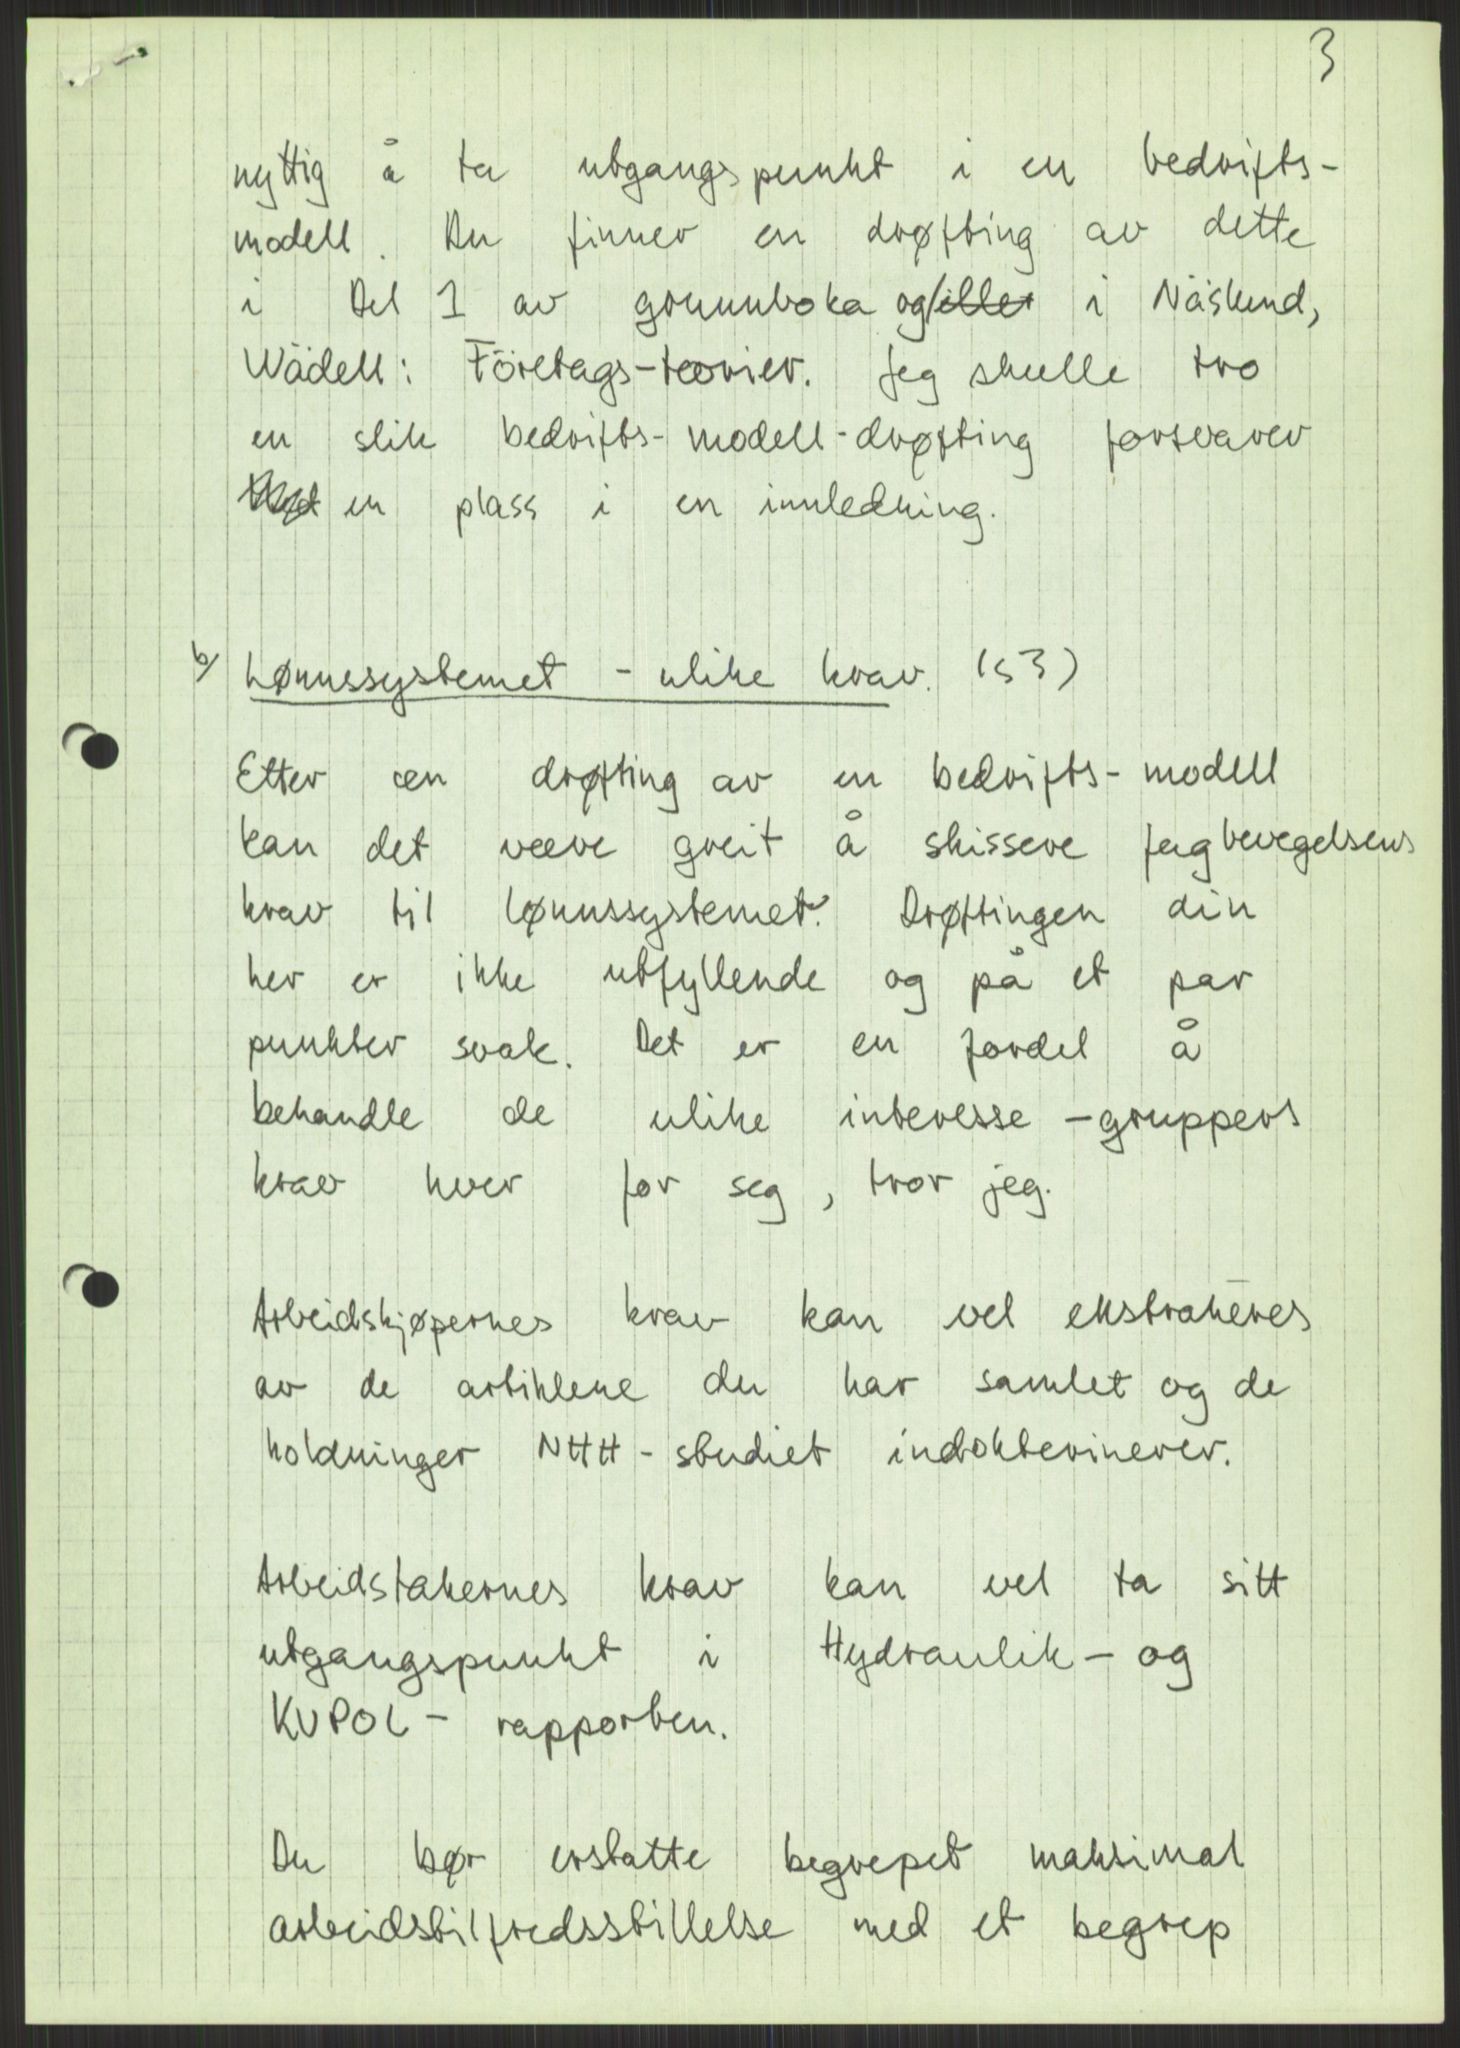 3
nyttig å ta utgangspunkt i en bedrifts-
modell. Du finner en drøfting av dette
i Del 1 av grunnboka og/eller i Näslund,
Wädell: Företags-teorier. Jeg skulle tro
en slik bedrifts-modell-drøfting forsvarer
en plass i en innledning.
b/ Lønnssystemet - ulike krav. (s 3)
Etter en drøfting av en bedrifts-modell
kan det være greit å skissere fagbevegelsens
krav til lønnssystemet. Drøftingen din
her er ikke utfyllende og på et par
punkter svak. Det er en fordel å
behandle de ulike interesse-gruppers
krav hver for seg, tror jeg.
Arbeidskjøpernes krav kan vel ekstraheres
av de artiklene du har samlet og de
holdninger NHH-studiet indokterinerer.
Arbeidstakernes krav kan vel ta sitt
utgangspunkt i Hydraulik- og
KUPOL- rapporten.
Du bør erstatte begrepet maksimal
arbeidstilfredsstillelse med et begrep